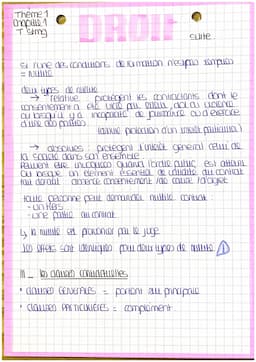 Thème 1
Chapitre 1
T stmg
DROIT
suite
si l'une des conditions de formation n'est pas remplie
= nullité
deux types de nullité
→ relative : protègent les contractants dont le
consentement a été vicié par erreur, dol ou violence
ou lorsqu'il y a incapacité de
d'une des parties
(abrive protection d'un intérêt particulier)
→ absolues : protègent l'intérêt général celui de
la société dans son ensemble
Peuvent être invoquées quand l'ordre public est atteint
ou lorsque un élément essentiel de validité du contrat
fait défaut : absence consentement, de cause, d'objet
toute personne peut demander nullité contrat
- un tiers
- une partie au contrat
↳ la nullité est prononcé par le juge
les effets sont identiques pour deux types de nullité
III _ les clauses contractuelles
• clauses GÉNÉRALES = portent sur principale
• clauses PARTICULIÈRES = complément